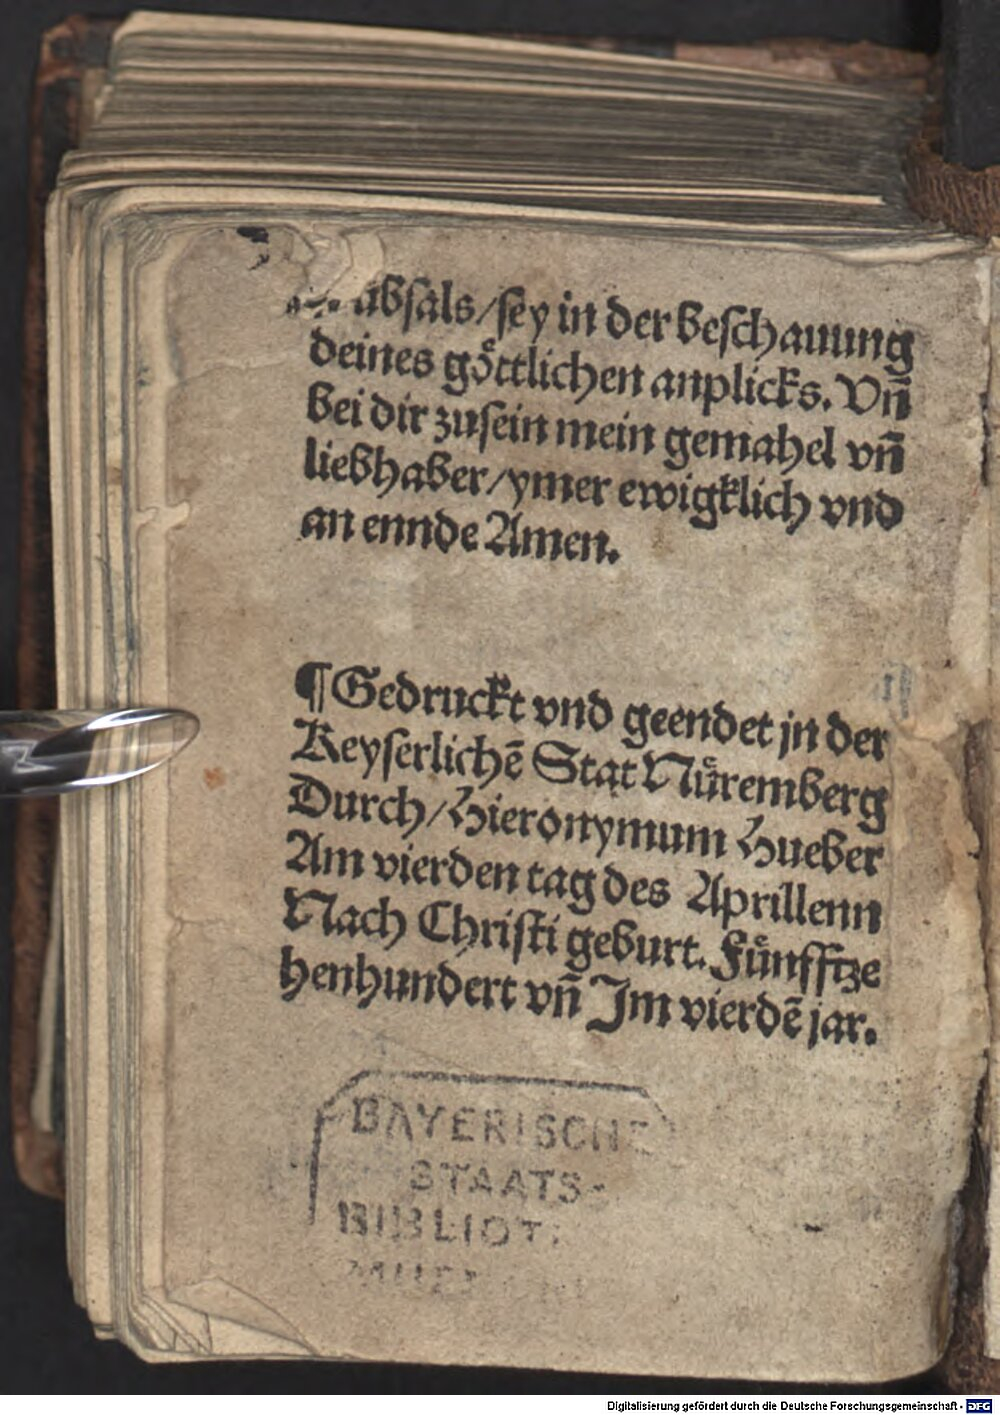 ſey in der beſchauung
deines goͤttlichen anplicks. Vn̄
bei dir zuſein mein gemahel vn̄
liebhaber/ymer ewigklich vnd
an ennde Amen.
¶Gedruckt vnd geendet jn der
Keyſerlichē Stat Nuͤremberg
Durch/Hieronymum Hueber
Am vierden tag des Aprillenn
Nach Chriſti geburt. Fuͤnfftze
henhundert vn̄ Jm vierdē jar.
BAYERISCHE
STAATS-
Digitalisierung gefördert durch die Deutsche Forschungsgemeinschaft - DFG